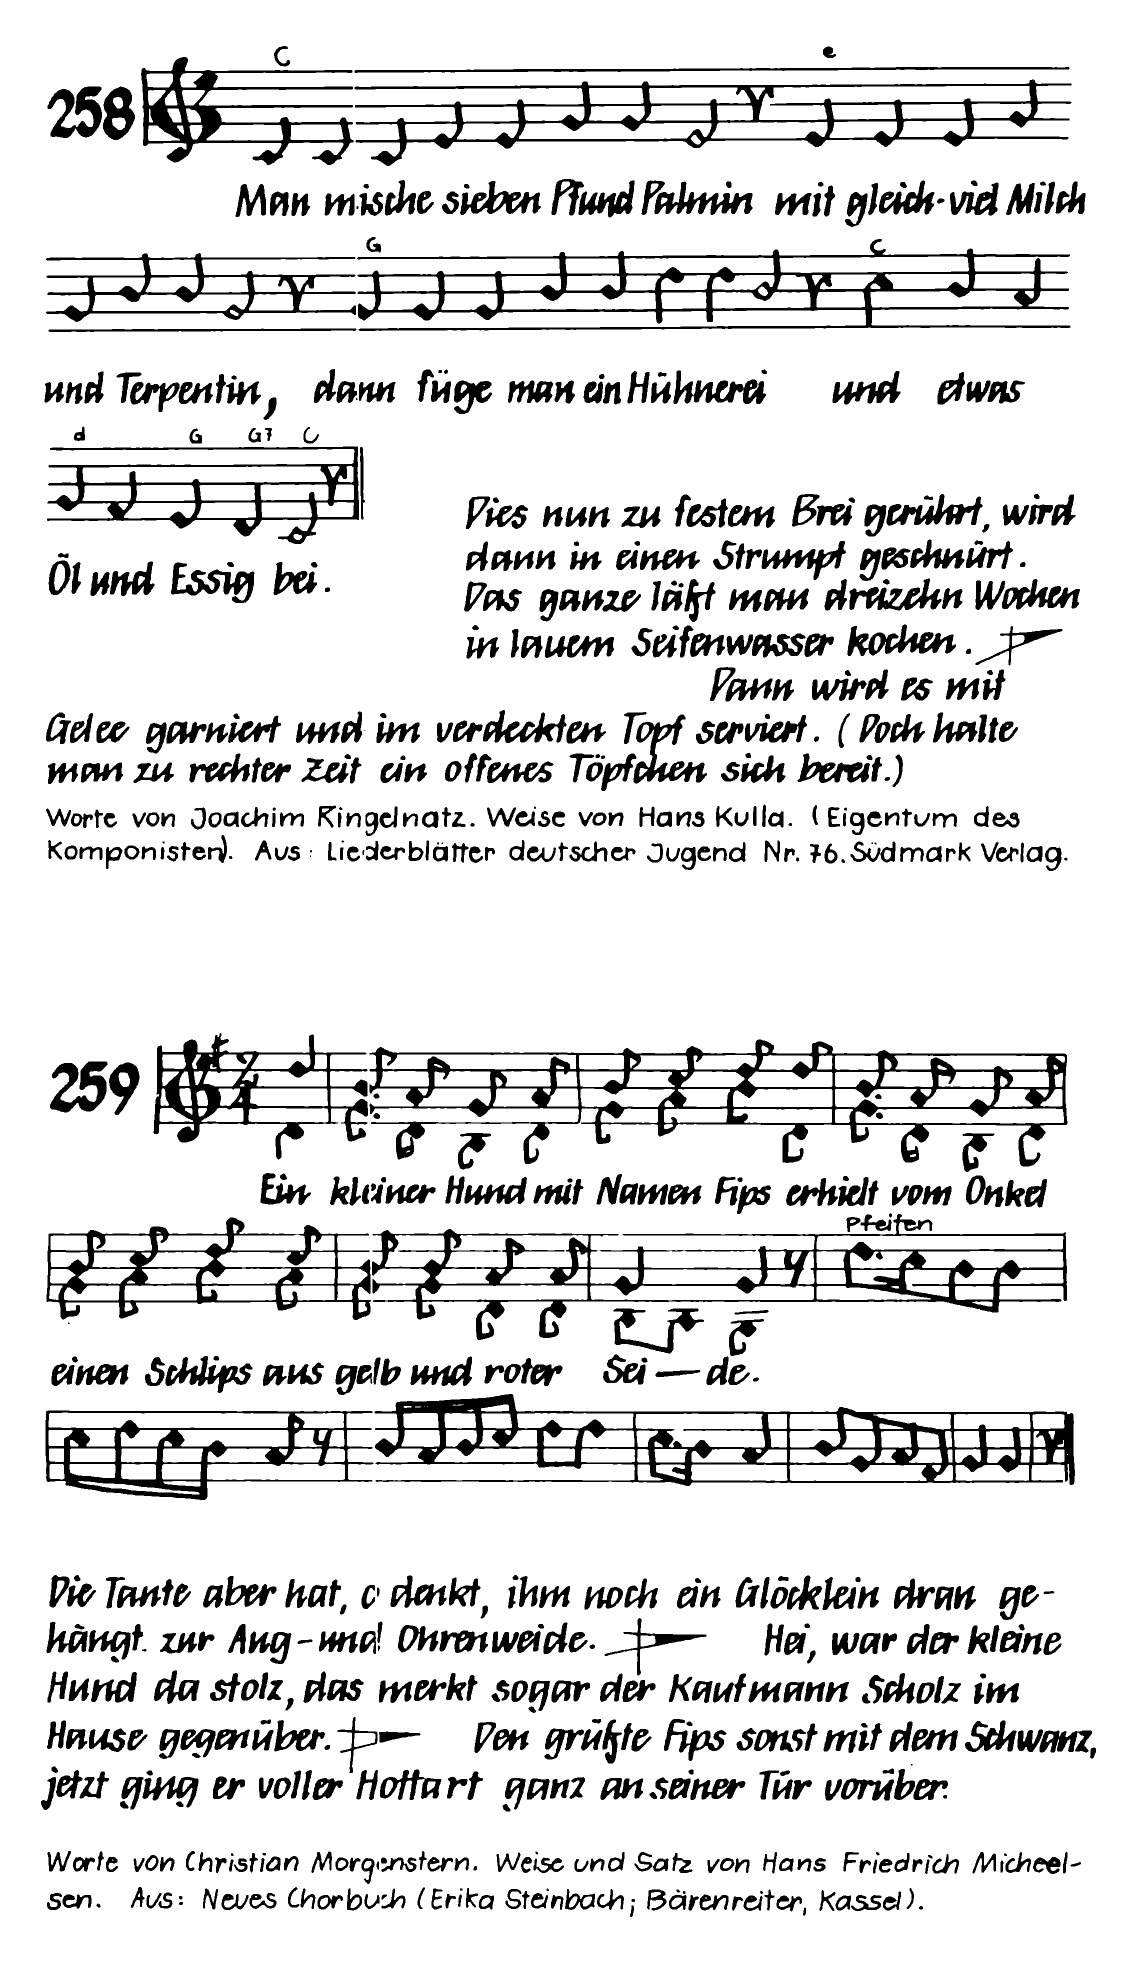 C e
258
Man mische sieben Pfund Palmin mit gleich-viel Milch
G C
und Terpentin, dann füge man ein Hühnerei und etwas
d G G7 C
Öl und Essig bei.
Dies nun zu festem Brei gerührt, wird
dann in einen Strumpf geschnürt.
Das ganze läßt man dreizehn Wochen
in lauem Seifenwasser kochen.
Dann wird es mit
Gelee garniert und im verdeckten Topf serviert. (Doch halte
man zu rechter Zeit ein offenes Töpfchen sich bereit.)
Worte von Joachim Ringelnatz. Weise von Hans Kulla. (Eigentum des
Komponisten). Aus: Liederblätter deutscher Jugend Nr. 76. Südmark Verlag.
259
7
4
Ein kleiner Hund mit Namen Fips erhielt vom Onkel
Pfeifen
einen Schlips aus gelb und roter Sei — de.
Die Tante aber hat, o denkt, ihm noch ein Glöcklein dran ge-
hängt zur Aug- und Ohrenweide. Hei, war der kleine
Hund da stolz, das merkt sogar der Kaufmann Scholz im
Hause gegenüber. Den grüßte Fips sonst mit dem Schwanz,
jetzt ging er voller Hoffart ganz an seiner Tür vorüber.
Worte von Christian Morgenstern. Weise und Satz von Hans Friedrich Micheel-
sen. Aus: Neues Chorbuch (Erika Steinbach; Bärenreiter, Kassel).